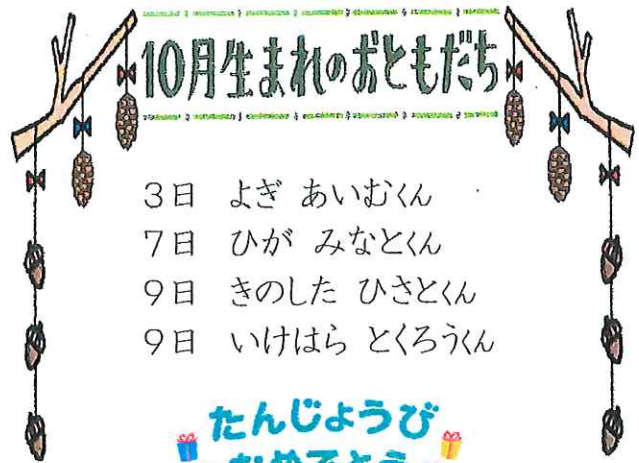 10月生まれのおともだち
3日 よぎ あいむくん
7日 ひが みなとくん
9日 きのした ひさとくん
9日 いけはら とくろうくん
たんじょうび
おめでとう